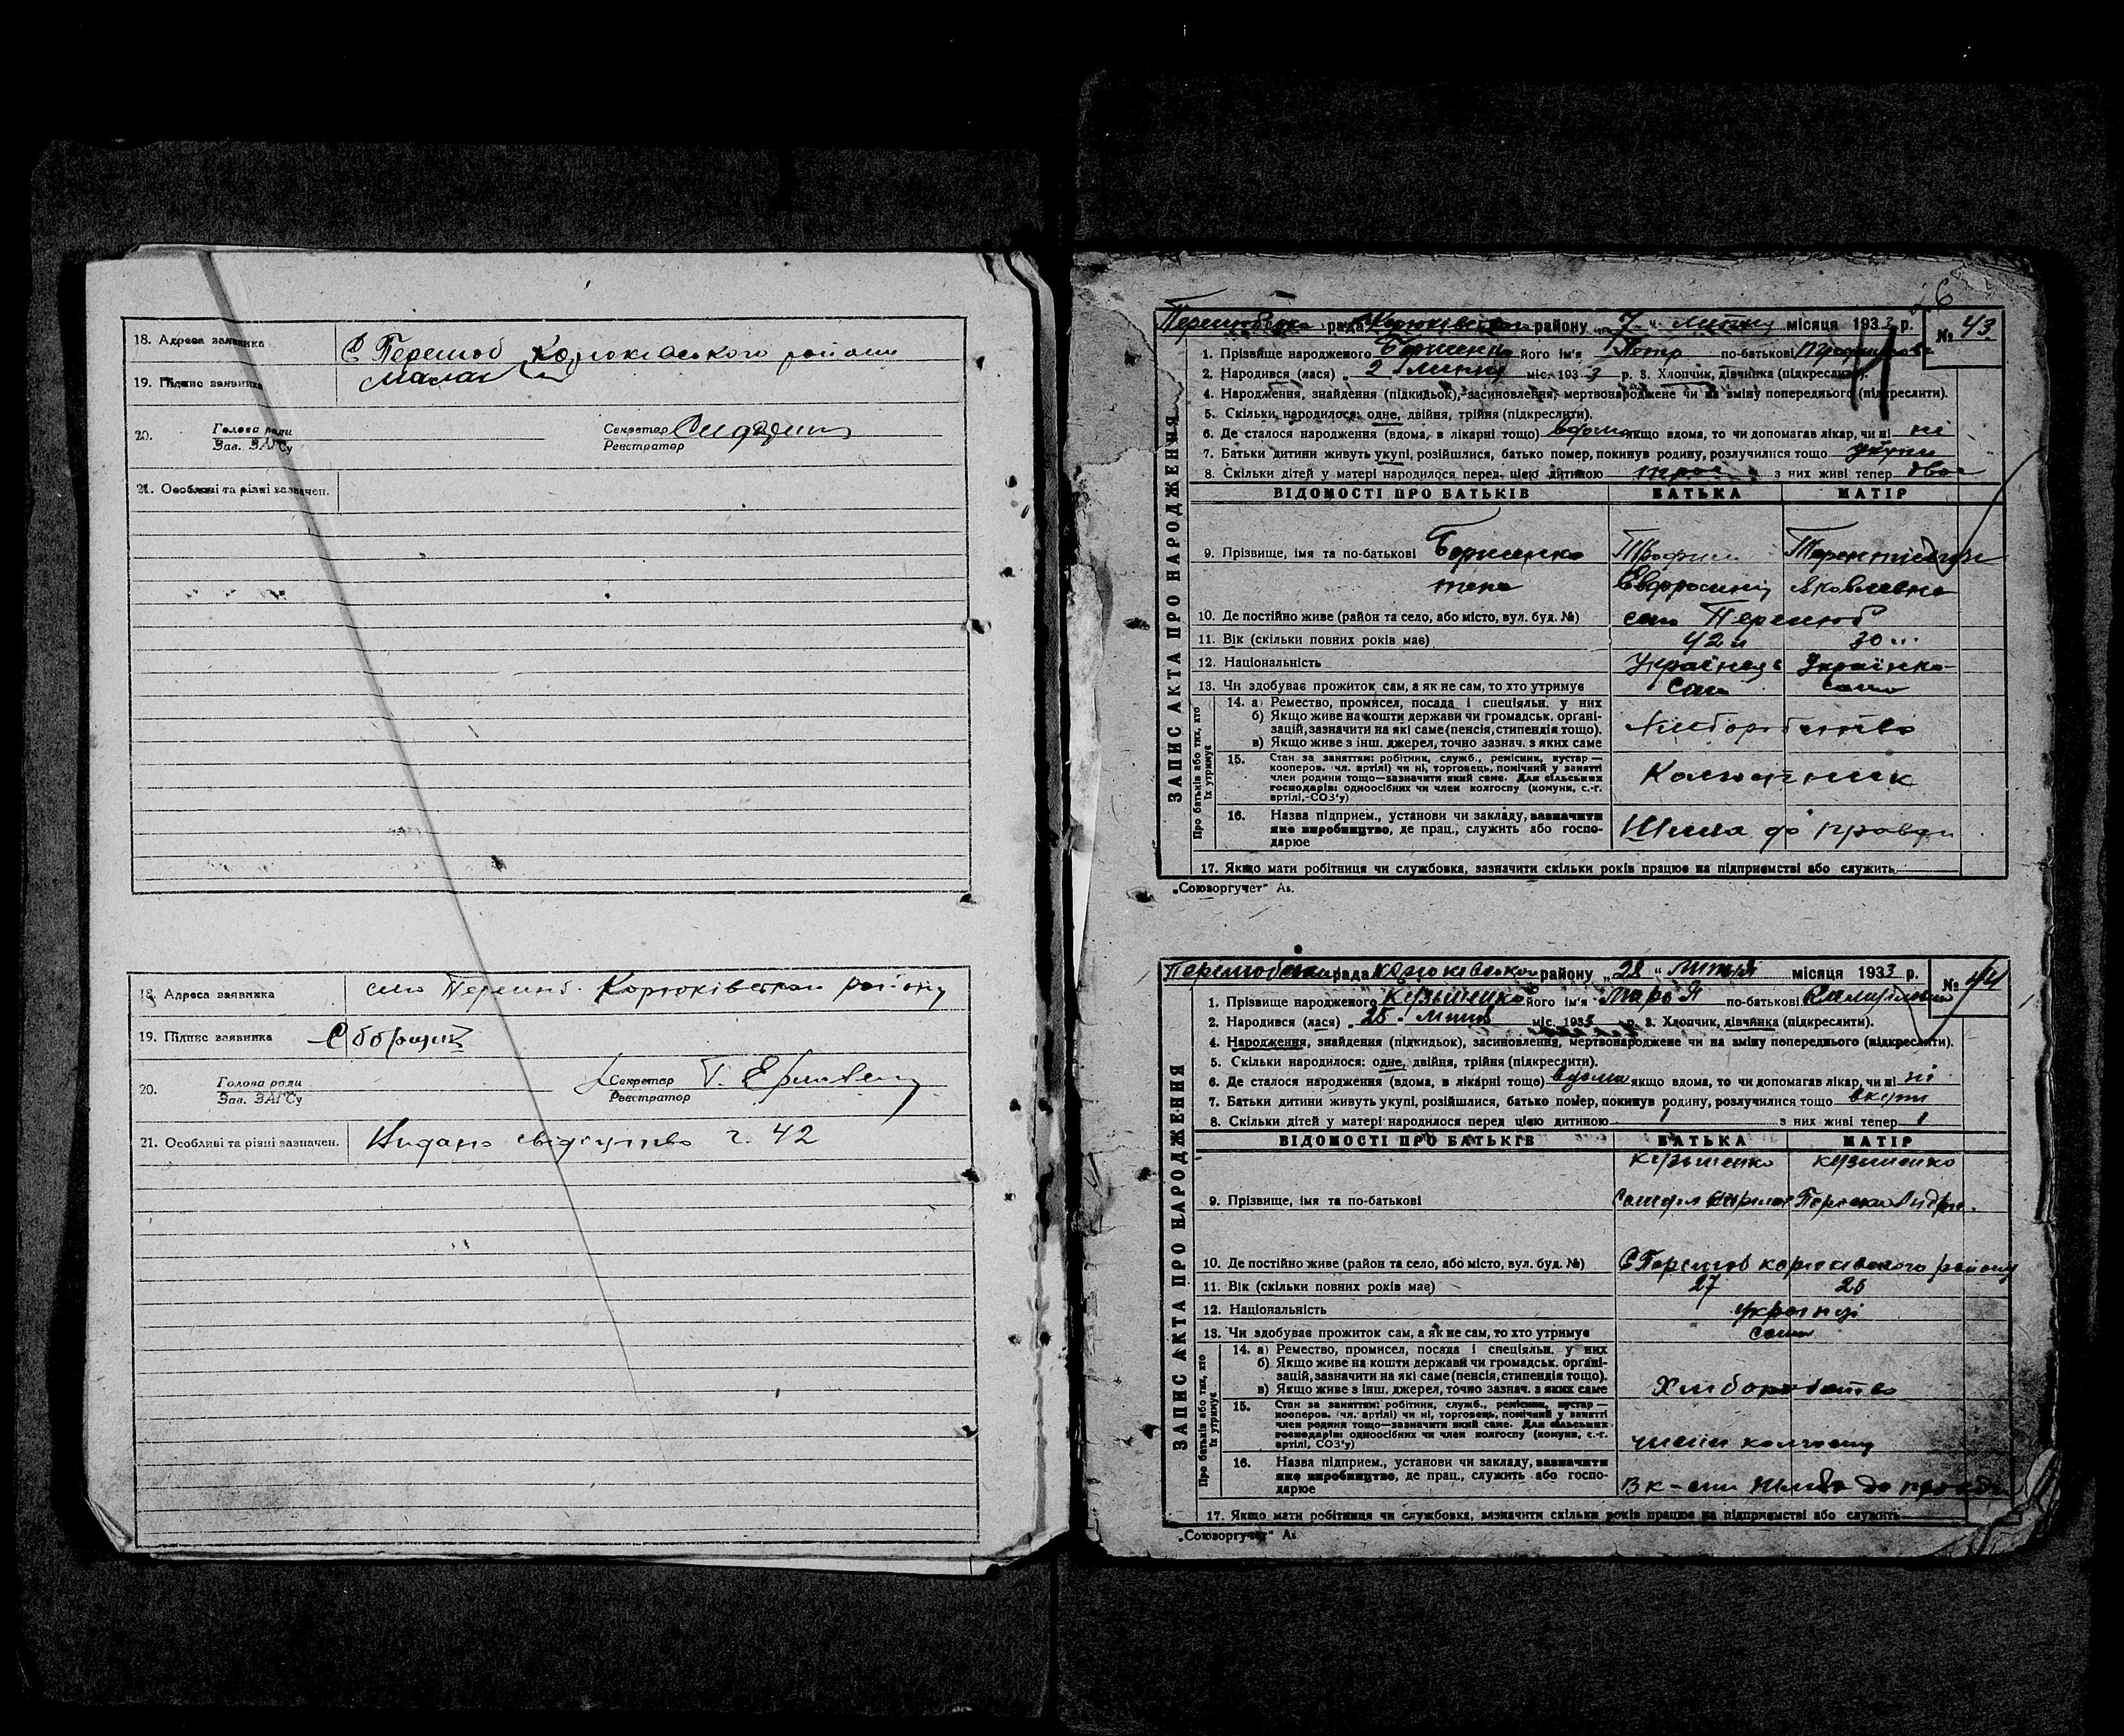 18. Адреса заявника С Перелюб Корюківського району
19. Підпис заявника
20. Голова ради Зав. ЗАГСу Секретар Реєстратор
21. Особливі та різні зазначен.
18. Адреса заявника село Перелюб Корюківського району
19. Підпис заявника
20. Голова ради Зав. ЗАГСу Секретар Реєстратор
21. Особливі та різні зазначен. Видано свідоцтво ч. 42
26
ЗАПИС АКТА ПРО НАРОДЖЕННЯ
рада Корюківського району „7“ липня місяця 1933 р. № 43
1. Прізвище народженого його ім'я Петро по-батькові
2. Народився (лася) „2 липня міс. 1933 р. 3. Хлопчик, дівчинка (підкреслити).
4. Народження, знайдення (підкидьок), засиновлення, мертвонароджене чи на зміну попереднього (підкреслити).
5. Скільки народилося: одне, двійня, трійня (підкреслити).
6. Де сталося народження (вдома, в лікарні тощо) вдома якщо вдома, то чи допомагав лікар, чи ні ні
7. Батьки дитини живуть укупі, розійшлися, батько помер, покинув родину, розлучилися тощо укупи
8. Скільки дітей у матері народилося перед цією дитиною троє з них живі тепер двоє
ВІДОМОСТІ ПРО БАТЬКІВ БАТЬКА МАТІР
9. Прізвище, імя та по-батькові Трофим
Яковлевна
10. Де постійно живе (район та село, або місто, вул. буд. №) село Перелюб
11. Вік (скільки повних років має) 42 30
12. Національність Українець Українка
13. Чи здобуває прожиток сам, а як не сам, то хто утримує Сам сама
Про батьків або тих, хто їх утримує
14. а) Ремество, промисел, посада і спеціяльн. у них
б) Якщо живе на кошти держави чи громадськ. органі-
зацій, зазначити на які саме (пенсія, стипендія тощо).
в) Якщо живе з інш. джерел, точно зазнач. з яких саме
Хліборобство
15. Стан за заняттям: робітник, служб., ремісник, кустар —
кооперов. (чл. артілі) чи ні, торговець, помічний у занятті
член родини тощо—зазначити який саме. Для сільських
господарів: одноосібних чи член колгоспу (комуни, с.-г.
артілі, СОЗ'у)
Колгоспник
16. Назва підприєм., установи чи закладу, зазначити
яке виробництво, де прац., служить або госпо-
дарює
Шлях до правди
17. Якщо мати робітниця чи службовка, зазначити скільки років працює на підприємстві або служить
„Союзоргучет“
ЗАПИС АКТА ПРО НАРОДЖЕННЯ
рада Корюківського району „28“ липня місяця 1933 р. № 44
1. Прізвище народженого Кузьменко його ім'я Марія по-батькові
2. Народився (лася) „25 міс. 1933 р. 3. Хлопчик, дівчинка (підкреслити).
4. Народження, знайдення (підкидьок), засиновлення, мертвонароджене чи на зміну попереднього (підкреслити).
5. Скільки народилося: одне, двійня, трійня (підкреслити).
6. Де сталося народження (вдома, в лікарні тощо) вдома якщо вдома, то чи допомагав лікар, чи ні ні
7. Батьки дитини живуть укупі, розійшлися, батько помер, покинув родину, розлучилися тощо вкупи
8. Скільки дітей у матері народилося перед цією дитиною 1 з них живі тепер 1
ВІДОМОСТІ ПРО БАТЬКІВ БАТЬКА МАТІР
Кузьменко Кузьменко
9. Прізвище, імя та по-батькові
10. Де постійно живе (район та село, або місто, вул. буд. №) С Перелюб Корюківського району
11. Вік (скільки повних років має) 27 25
12. Національність українці
13. Чи здобуває прожиток сам, а як не сам, то хто утримує сами
Про батьків або тих, хто їх утримує
14. а) Ремество, промисел, посада і спеціяльн. у них
б) Якщо живе на кошти держави чи громадськ. органі-
зацій, зазначити на які саме (пенсія, стипендія тощо).
в) Якщо живе з інш. джерел, точно зазнач. з яких саме
Хліборобство
15. Стан за заняттям: робітник, служб., ремісник, кустар —
кооперов. (чл. артілі) чи ні, торговець, помічний у занятті
член родини тощо—зазначити який саме. Для сільських
господарів: одноосібних чи член колгоспу (комуни, с.-г.
артілі, СОЗ'у)
члени колгоспу
16. Назва підприєм., установи чи закладу, зазначити
яке виробництво, де прац., служить або госпо-
дарює
В к-спи Шлях до правди
17. Якщо мати робітниця чи службовка, зазначити скільки років працює на підприємстві або служить
„Союзоргучет“